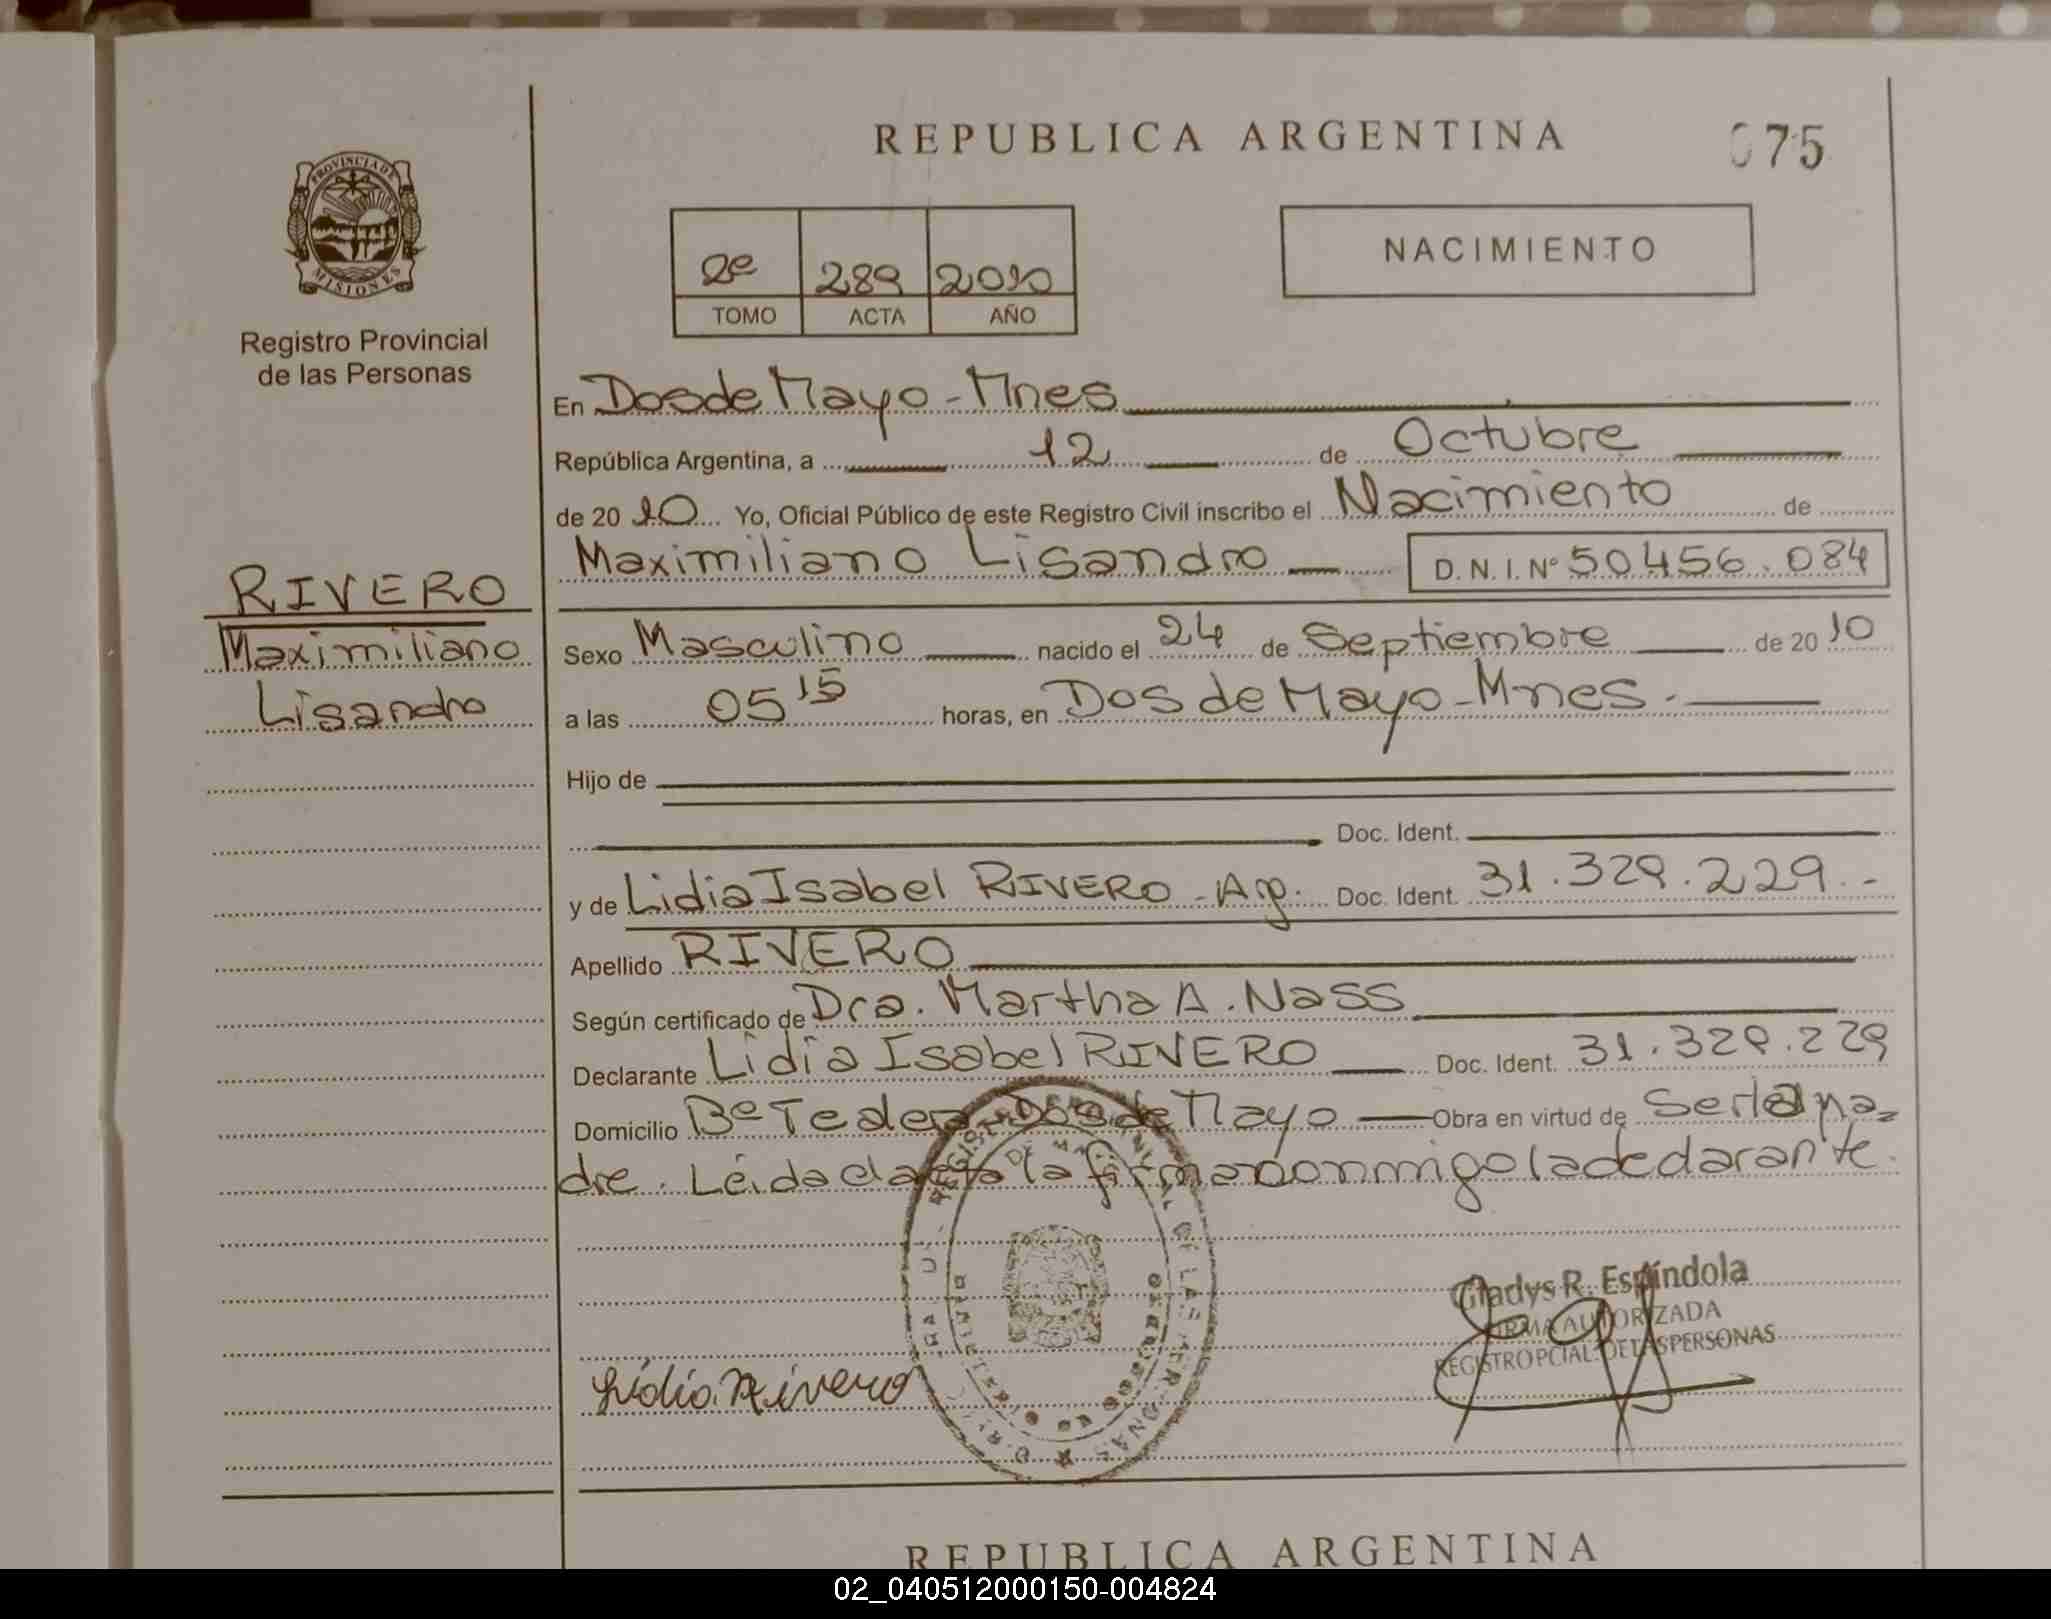 REPUBLICA ARGENTINA
075
PROVINCIA DE
MISIONES
Registro Provincial
de las Personas
2º 289 2010
TOMO ACTA AÑO
NACIMIENTO
En Dos de Mayo - Mnes
República Argentina, a 12 de Octubre
de 20 10 Yo, Oficial Público de este Registro Civil inscribo el Nacimiento de
Maximiliano Lisandro D.N.I.Nº 50456.084
RIVERO
Maximiliano
Lisandro
Sexo Masculino nacido el 24 de Septiembre de 20 10
a las 05 15 horas, en Dos de Mayo - Mnes.
Hijo de
Doc. Ident.
y de Lidia Isabel RIVERO - Arg. Doc. Ident. 31.329.229.-
Apellido RIVERO
Según certificado de Dra. Martha A. Nass
Declarante Lidia Isabel RIVERO Doc. Ident. 31.329.229
Domicilio Bº Dos de Mayo Obra en virtud de Ser la ma=
dre. Leída el acta la firma conmigo la declarante.
Gladys R. Espíndola
FIRMA AUTORIZADA
REGISTRO PCIAL. DE LAS PERSONAS
Lidia Rivero
REPUBLICA ARGENTINA
02_040512000150-004824